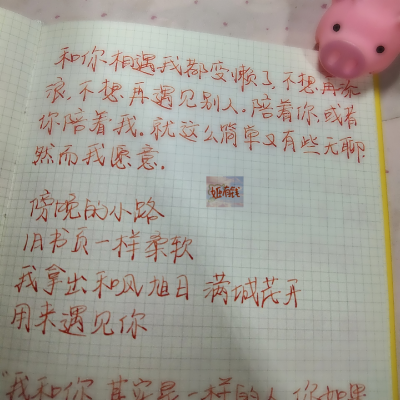 和你相遇我都变懒了,不想再流
浪,不想再遇见别人.陪着你,或者
你陪着我.就这么简单又有些无聊.
然而我愿意.
傍晚的小路
旧书页一样柔软
我拿出和风旭日 满城花开
用来遇见你
"我和你 其实是一样的人 你如果